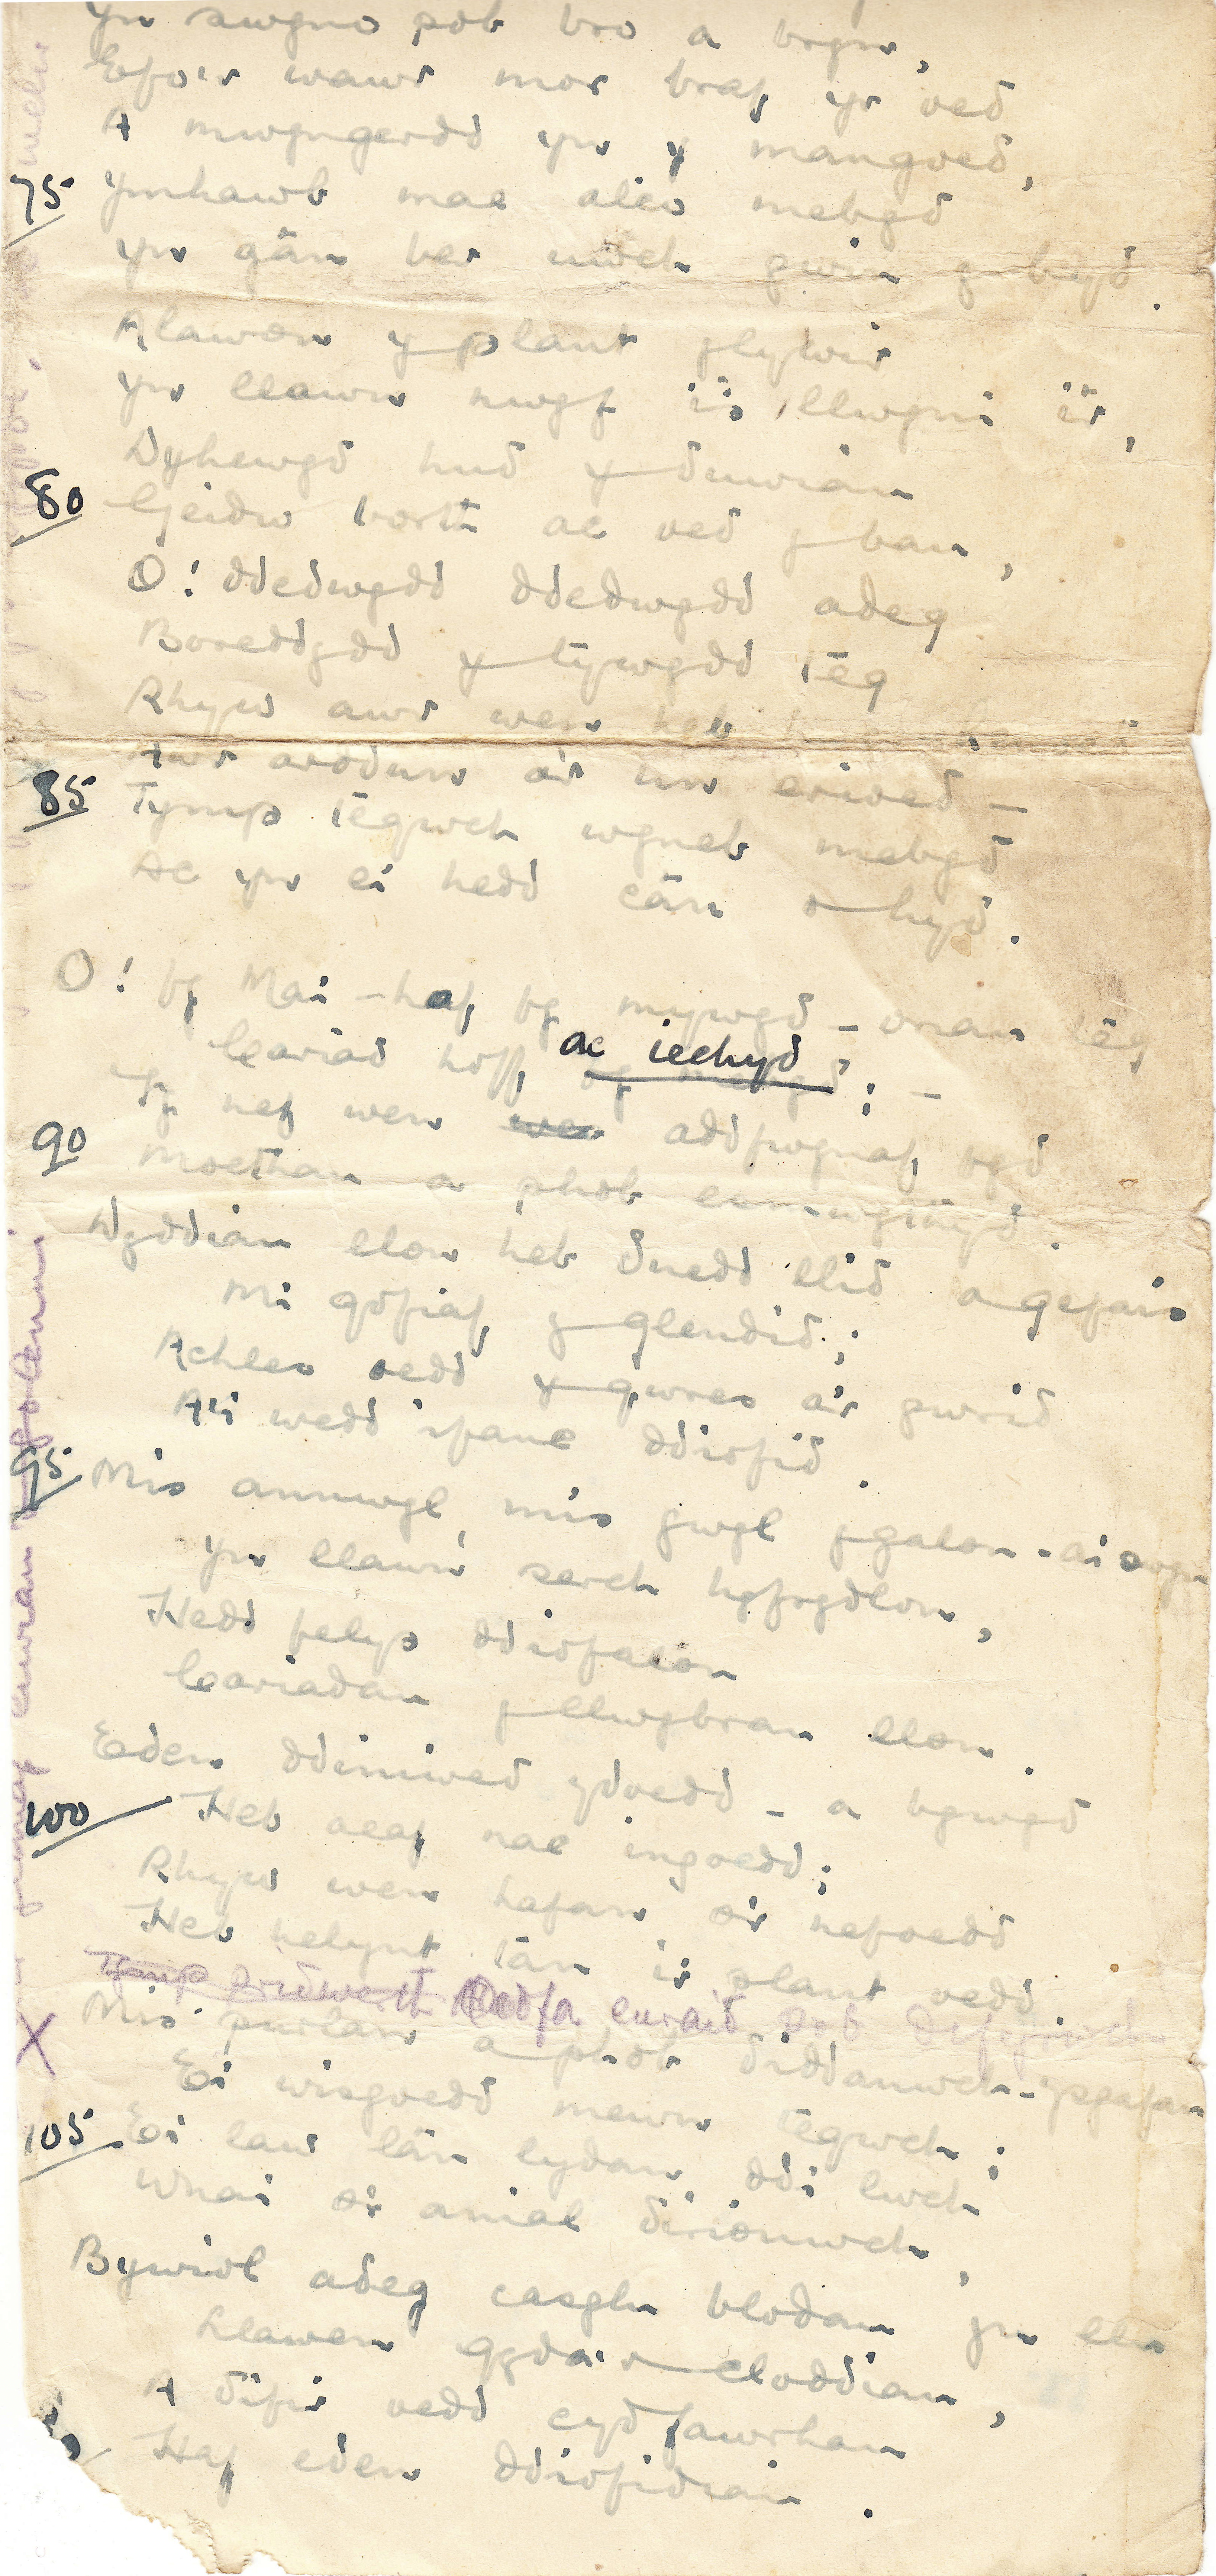 Yn swyno pob bro a bryn,
Efo'r wawr mor braf yr oed
A mwyngerdd yn y mangoed,
75 Ymhawb mae alaw mebyd
Yn gân ber uwch gwin y byd.
Alawon y plant glywir
Yn llawn nwyf i's llwyni ir,
Dyhewyd hud y duwiau
80 Geidw borth ac oed y ban,
O! ddedwydd ddedwydd adeg
Boreddydd y tywydd têg
Rhyw awr wen
Awr arodun a'r un erioed —
85 Tymp têgwch wyneb mebyd
Ac yn ei hedd cân o hyd.
O! fy Mai – haf fy mywyd – oriau têg
Cariad hoff ac iechyd;
Fy nef wen addfwynaf fyd
90 Moethau a phob
Dyddiau llon heb duedd llid a gefais
Mi gofiaf y glendid;
Achles oedd y gwres a'r gwrid
A'i wedd ifanc ddiofid.
95 Mis annwyl, mis gwyl y galon – a'i swyn
Yn llawn serch hyfrydlon,
Hedd felys ddiofalon
Cariadau y llwybrau llon.
Eden ddiniwed ydoedd – a bywyd
100 Heb aeaf nac ingoedd;
Rhyw wen hafan o'r nefoedd
Heb helynt tan i'r plant oedd
Tymp pridwerth Oedfa euraid pob
X Mis purlan a phob diddanwch – ysgafn
Ei wisgoedd mewn têgwch;
105 Ei law lân lydan ddi lwch
Wnai o'r anial dirionwch,
Bywiol adeg casglu blodau yn llu
Llawen gyda'r cloddiau,
A difir oedd cyd fawrhau
Haf eden ddiofidiau.